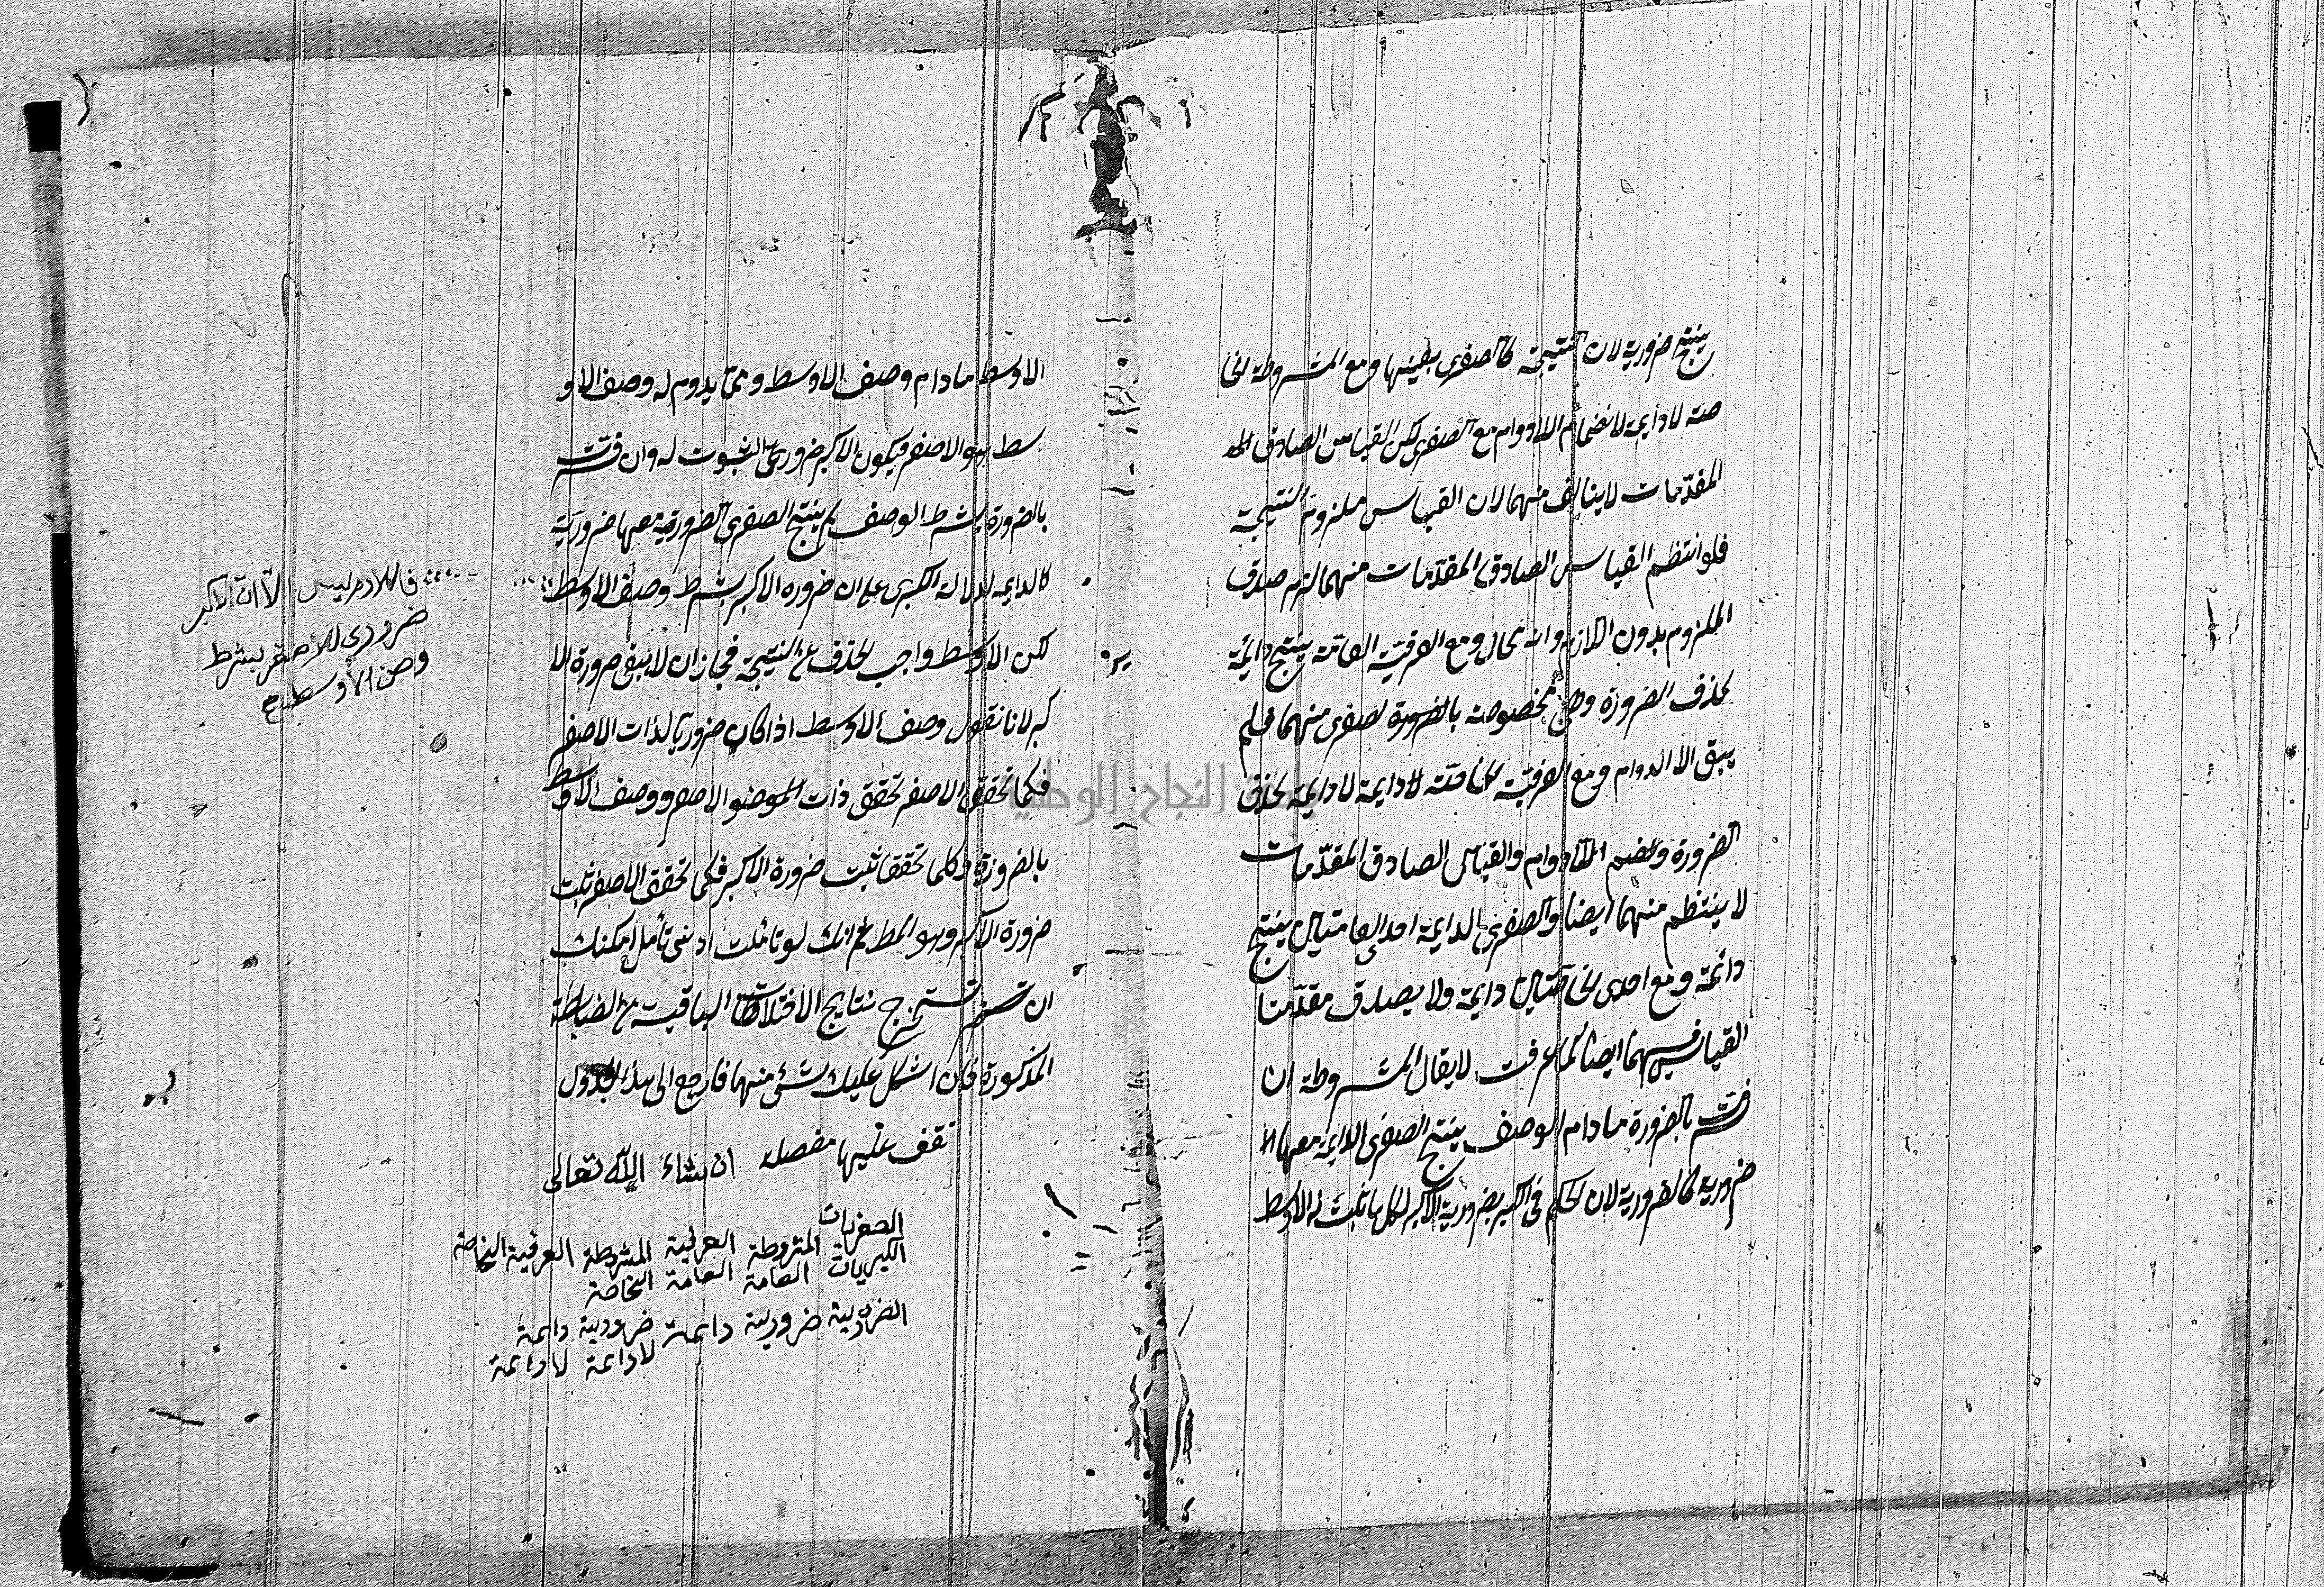 ينتج ضرورية لان النتيجة كالصغرى بعينها ومع المشروطة الخا
صة لا دايمة لانضمام اللادوام مع الصغرى لكن القياس الصادق
المقدمات لا يتالف منهما لان القياس ملزوم النتيجة
فلو انتظم القياس الصادق المقدمات منهما لزم صدق
الملزوم بدون اللازم وانه محال ومع العرفية العامة ينتج دائمة
بحذف الضرورة وهى مخصوصة بالضرورة لصغرى منهما فلم
يبق الا الدوام ومع العرفية الخاصة لا دايمة لا دايمة بحذف
الضرورة وضم اللادوام والقياس الصادق المقدمات
لا ينتظم منهما ايضا والصغرى الدايمة احدى العامتين ينتج
دائمة ومع احدى الخاصتين دايمة ولا يصدق مقدمتا
القياس فيهما ايضا كما عرفت لا يقال المشروطة ان
فسرت بالضرورة مادام الوصف ينتج الصغرى الدايمة معها
ضرورية كالضرورية لان الحكم فى الكبرى بضرورية الاكبر لكل ما ثبت له الاوسط
الاوسط مادام وصف الاوسط ومما يدوم له وصف الاو
سط هو الاصغر فيكون الاكبر ضرورى الثبوت له وان فسرت
بالضرورة بشرط الوصف لم ينتج الصغرى الضرورية معها ضرورية
كالدايمة لدلالة الكبرى على ان ضرورة الاكبر بشرط وصف الاوسط
لكن الاوسط واجب الحذف عن النتيجة فجاز ان لا يبقى ضرورة الا
كبر لانا نقول وصف الاوسط اذا كان ضروريا لذات الاصغر
فكلما تحقق الاصغر تحقق ذات الموضوع الاصغر ووصف الاوسط
بالضرورة وكلما تحققا ثبت ضرورة الاكبر فكلما تحقق الاصغر ثبت
ضرورة الاكبر وهو المط ثم انك لو تاملت ادنى تأمل امكنك
ان تستخرج نتايج الاختلاطات الباقية من الضابطة
المذكورة فان اشكل عليك شئ منها فارجع الى هذا الجدول
تقف عليها مفصلة ان شاء الله تعالى
فاللازم ليس الا ان الاكبر
ضرورى للاصغر بشرط
وصف الاوسط
الصغريات
الكبريات المشروطة العرفية المشروطة العرفية الخاصة
العامة العامة الخاصة
الضرورية ضرورية دايمة ضرورية دايمة
لا دايمة لا دايمة
النجاح الوطنية